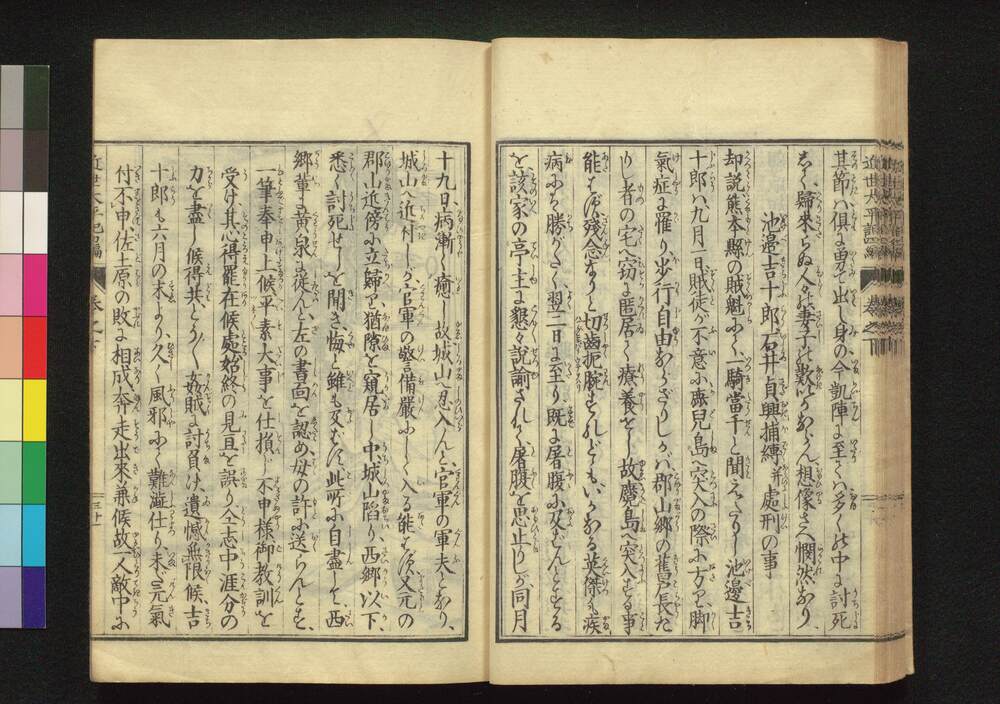 其節ハ俱に勇で出し身の、今凱陣に至てハ多くの中に討死
なし、歸来らぬ人々の妻子の歎いかならん、想像さへ憫然なり、
池邉吉十郎石井貞興捕縛并處刑の事
却説熊本縣の賊魁にて、一騎當千と聞えたりし池邉吉
十郎ハ、九月一日賊徒が不意に鹿兒島へ突入の際に方り、脚
氣症に罹り歩行自由ならざりしかバ、郡山郷の舊戸長た
りし者の宅へ窃に匿居て療養をし、故麑島へ突入する事
能はず、残念なりと切齒扼腕すれどもいかなる英傑も疾
病にハ勝がたく、翌二日に至り、既に屠腹に及ばんとする
を、該家の亭主に懇々説諭されて、屠腹を思止りしが、同月
十九日、病漸く癒し故、城山へ忍入んと官軍の軍夫となり、
城山へ近付しが、官軍の警備嚴にして入る能はず、又元の
郡山近傍に立歸り、猶隙を窺居し中、城山陥り、西郷以下、
悉く討死せしを聞き、悔と雖も及ばず、此所に自盡して、西
郷輩に黄泉に従んと、左の書面を認め、母の許に送らんとす、
一筆奉申上候、平素大事を仕損じ不申様御教訓を
受け、其心得罷在候處、始終の見亘を誤り、仝志中涯分の
力を盡し候得共、とう〳〵姦賊に討負け、遺憾無限候、吉
十郎も六月の末より、久く風邪にて難澁仕り、未だ元氣
付不申、佐土原の敗に相成、奔走出來兼候故、一人敵中に
近世太平記四編
卷之下
三十